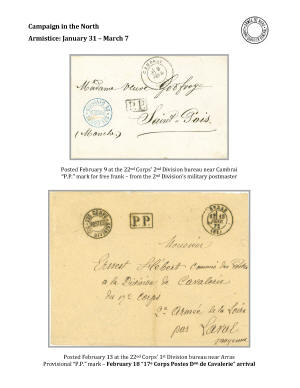 Campaign in the North
Armistice: January 31 – March 7
CAMBRAI
Madame veuve Godfroy
P.P.
Saint-Pois
(Manche)
Posted February 9 at the 22nd Corps' 2nd Division bureau near Cambrai
"P.P." mark for free frank – from the 2nd Division's military postmaster
ARRAS
P.P.
Monsieur
Ernest Hébert commis des Postes
a la Division de Cavalerie
du 17e corps
2e Armée de la Loire
par Laval
Mayenne
Posted February 13 at the 22nd Corps' 1st Division bureau near Arras
Provisional "P.P." mark – February 18 "17e Corps Postes Don de Cavalerie" arrival